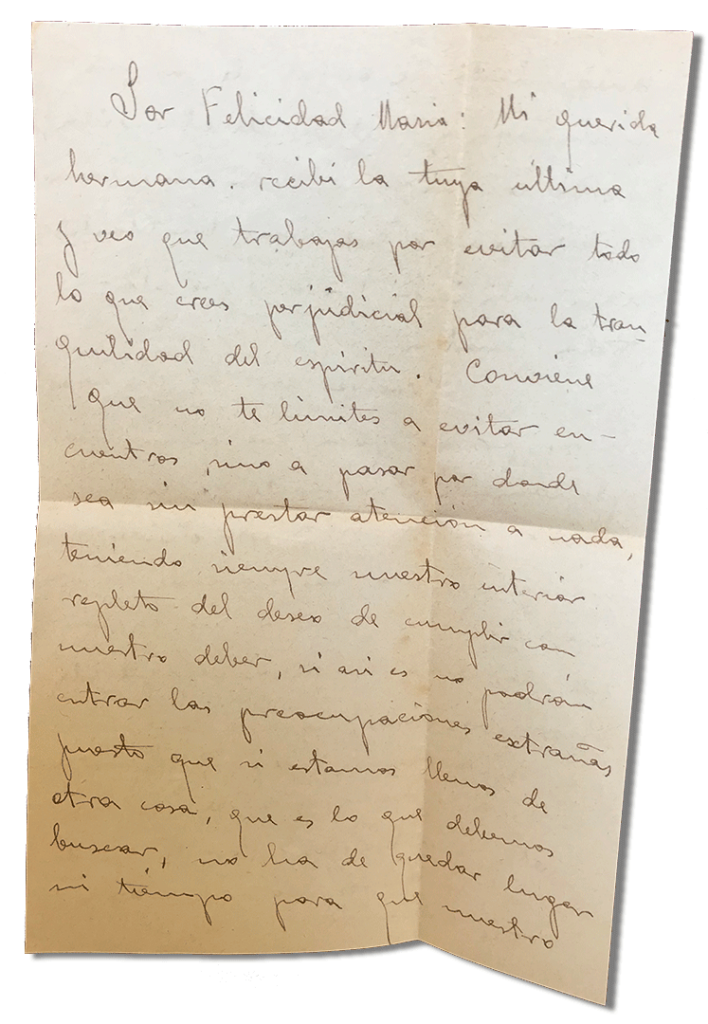 Sor Felicidad Maria: Mi querida
hermana. recibí la tuya última
y veo que trabajas por evitar todo
lo que crees perjúdicial para la tran-
quilidad del espíritu. Conviene
que no te límites a evitar en-
cuentros, sino a pasar por donde
sea sin prestar atención a nada,
teniendo siempre nuestro interiór
repleto del deseo de cumplir con
nuestro deber, si asi es no podrán
entrar las preocupaciónes extrañas
puesto que si estamos llenos de
otra cosa, que es lo que debemos
buscar, no ha de quedar lugar
ni tiempo para que nuestro